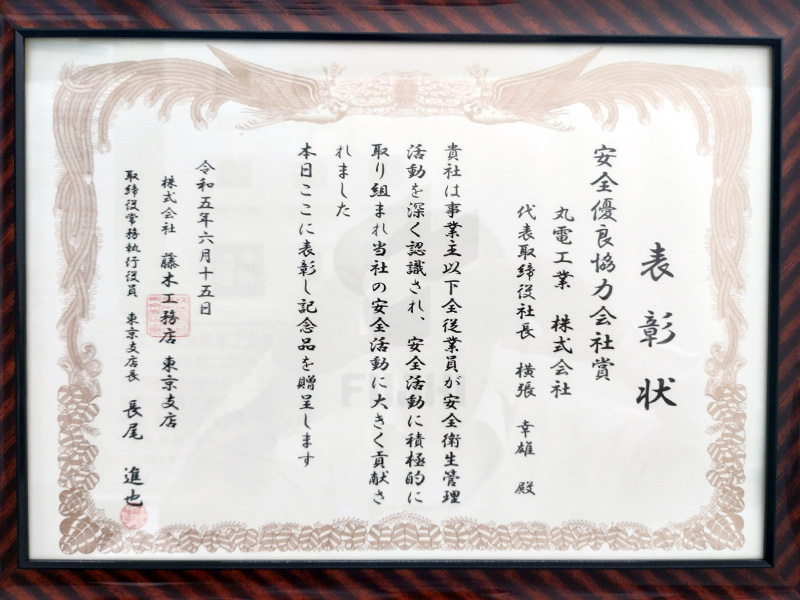 表彰状
安全優良協力会社賞
丸電工業　株式会社
代表取締役社長　横張　幸雄　殿
貴社は事業主以下全従業員が安全衛生管理
活動を深く認識され、安全活動に積極的に
取り組まれ当社の安全活動に大きく貢献さ
れました
本日ここに表彰し記念品を贈呈します
令和五年六月十五日
株式会社　藤木工務店　東京支店
取締役常務執行役員　東京支店長　長尾　進也